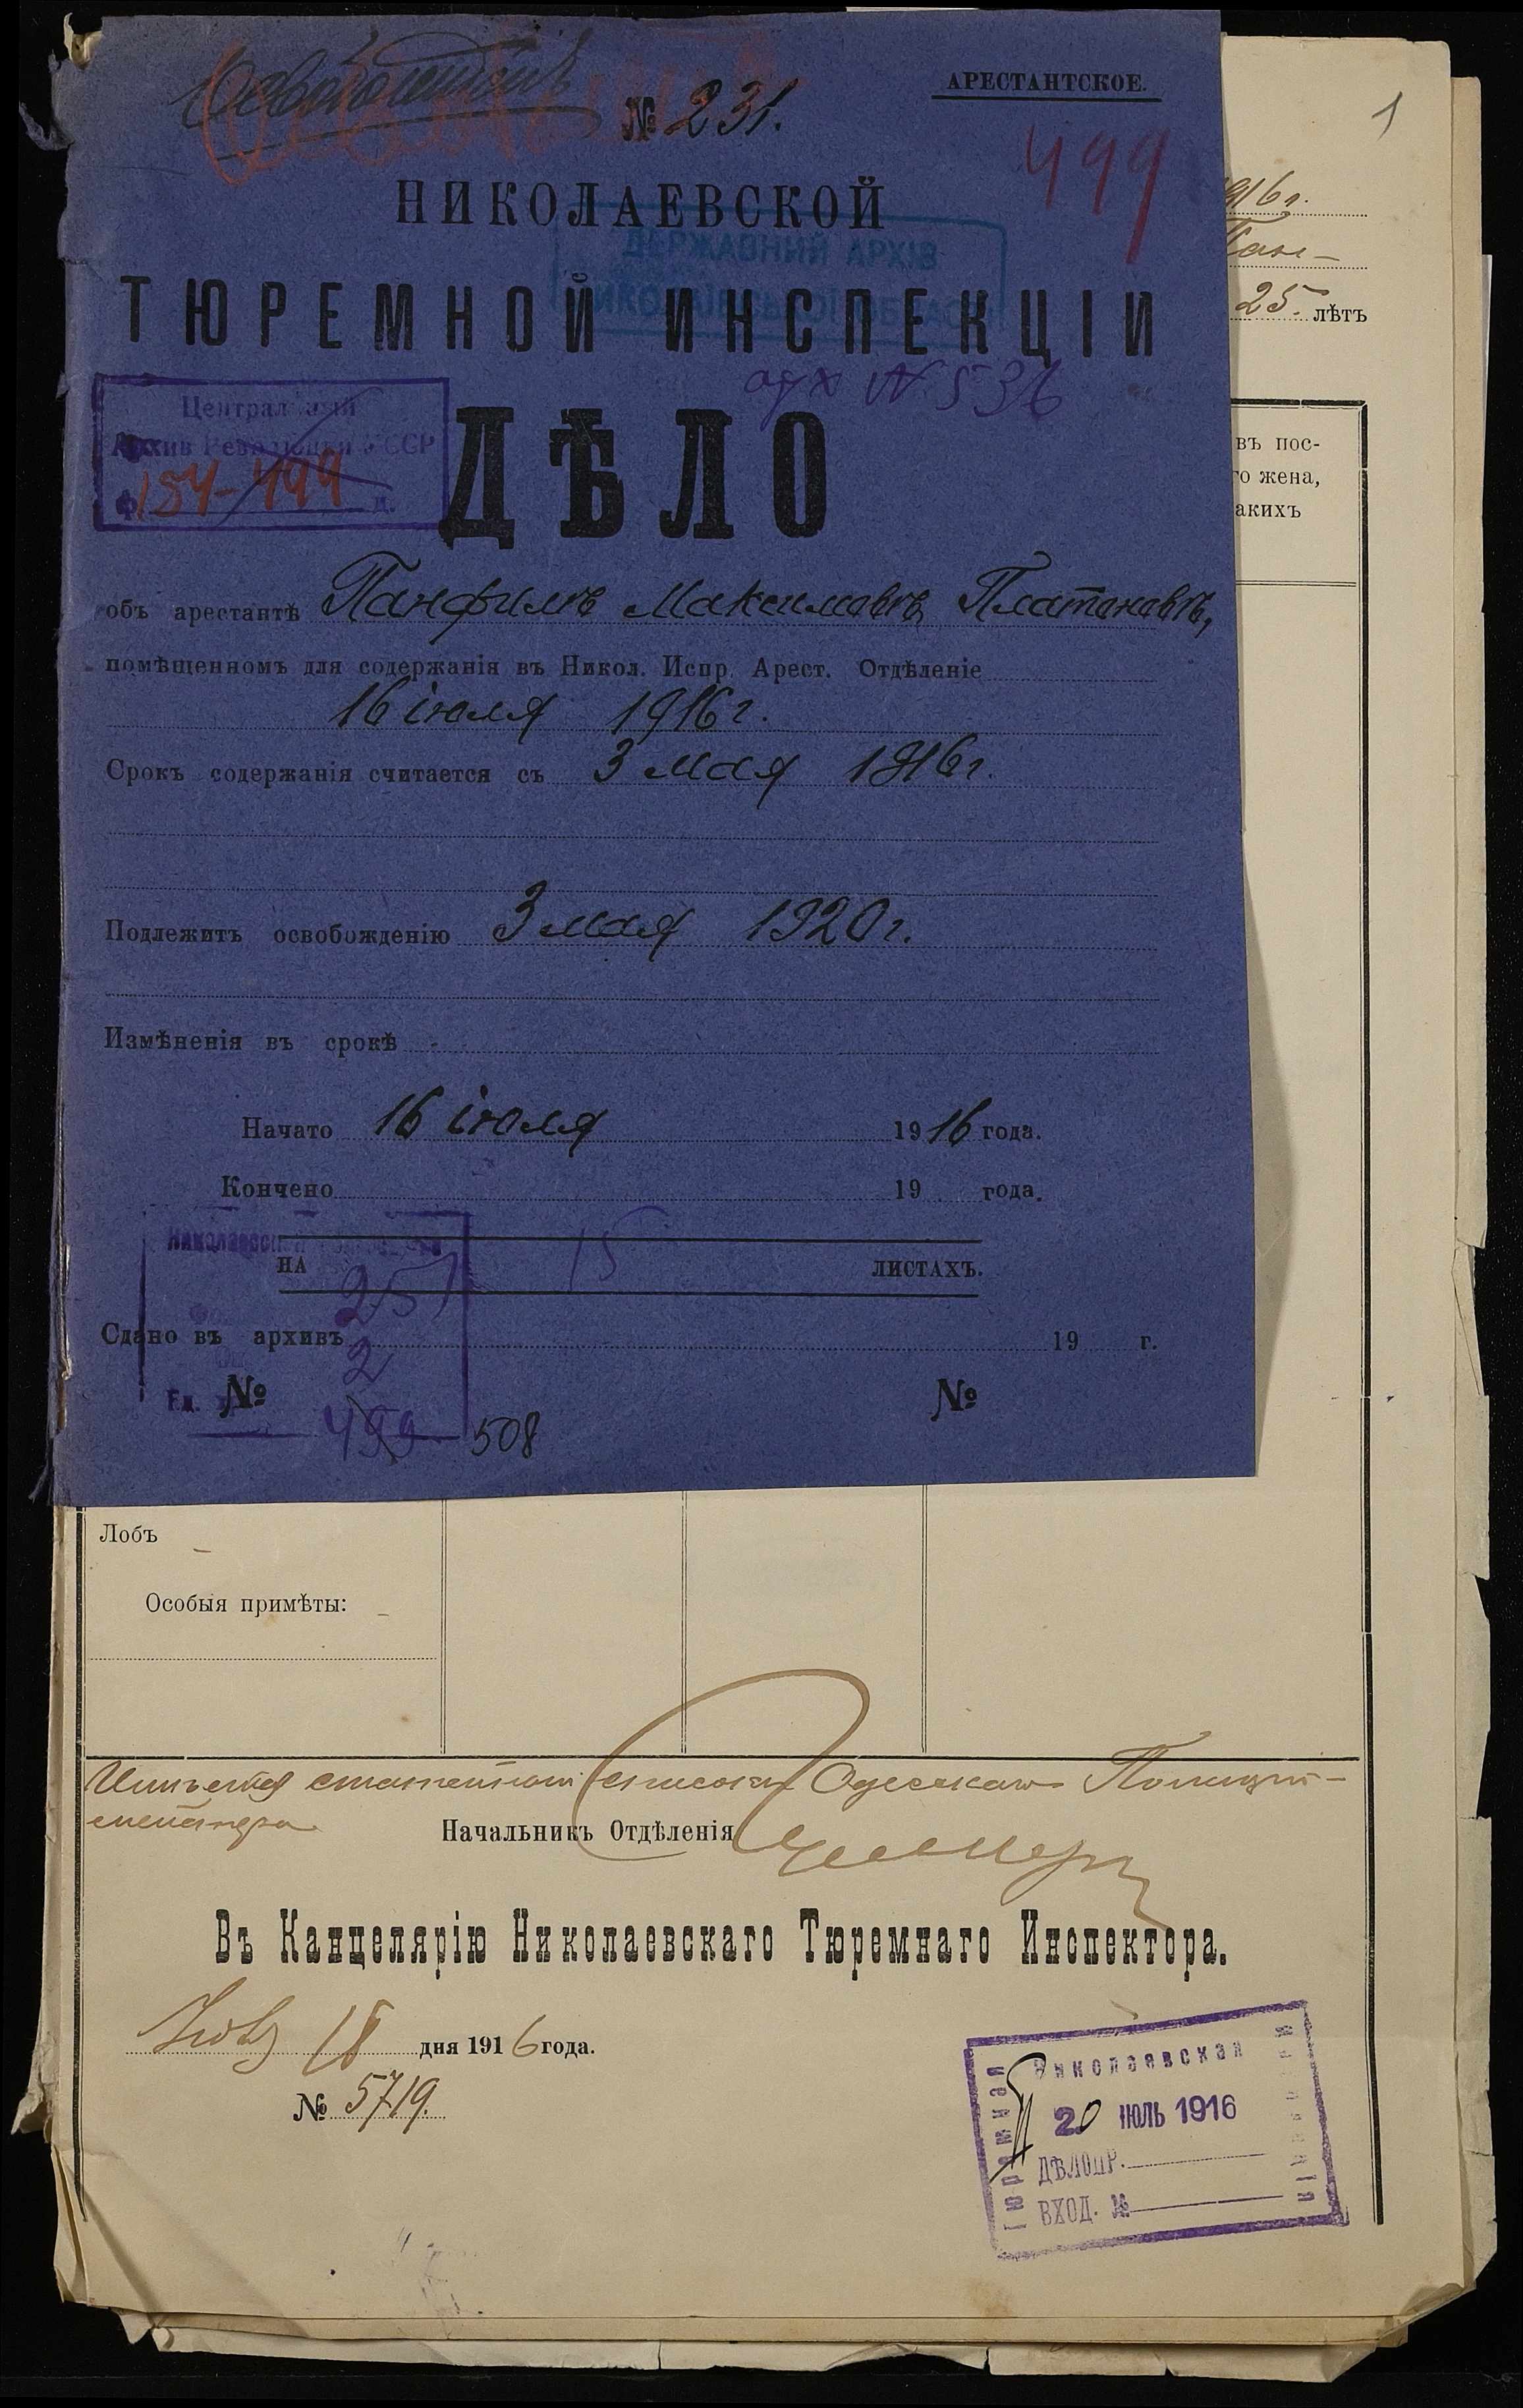 Освобожденъ
№ 231.
АРЕСТАНТСКОЕ.
499
1
НИКОЛАЕВСКОЙ
ДЕРЖАВНИЙ АРХІВ
ТЮРЕМНОЙ ИНСПЕКЦІИ
арх № 536
Архив Революции УССР
ф. 184-499 д.
ДѢЛО
объ арестантѣ Панфилѣ Максимовѣ Платановѣ,
помѣщенномъ для содержанія въ Никол. Испр. Арест. Отдѣленіе
16 іюля 1916 г.
Срокъ содержанія считается съ 3 мая 1916 г.
Подлежитъ освобожденію 3 мая 1920 г.
Измѣненія въ срокѣ -
Начато 16 іюля 1916 года.
Кончено 19 года.
НА 15 ЛИСТАХЪ.
251
Сдано въ архивъ 19 г.
2
Ед. №
№
499 508
916 г.
Пан-
25. лѣтъ
въ пос-
го жена,
акихъ
Лобъ -
Особыя примѣты: -
Имѣется статейный списокъ Одесскаго Полиций-
мейстера
Начальникъ Отдѣленія
Въ Канцелярію Николаевскаго Тюремнаго Инспектора.
Іюля 18 дня 1916 года.
№ 5719.
Николаевская
Тюремная
20 ІЮЛЬ 1916
ДѢЛОПР.
ВХОД. №